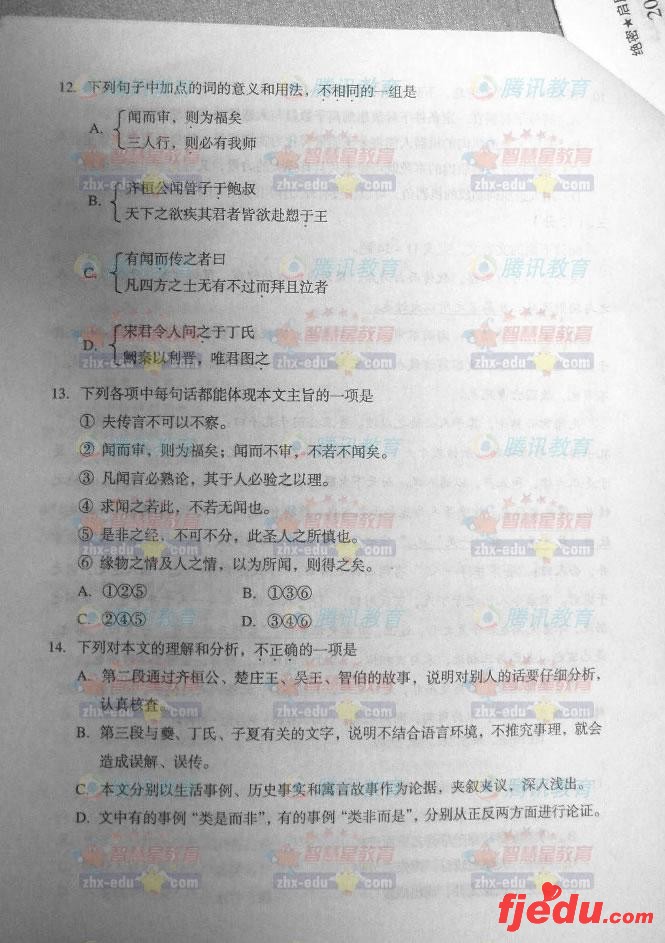 绝密★启
20
12. 下列句子中加点的词的意义和用法，不相同的一组是
A. 闻而审，则为福矣
三人行，则必有我师
B. 齐桓公闻管子于鲍叔
天下之欲疾其君者皆欲赴愬于王
C. 有闻而传之者曰
凡四方之士无有不过而拜且泣者
D. 宋君令人问之于丁氏
阙秦以利晋，唯君图之
13. 下列各项中每句话都能体现本文主旨的一项是
① 夫传言不可以不察。
② 闻而审，则为福矣；闻而不审，不若不闻矣。
③ 凡闻言必熟论，其于人必验之以理。
④ 求闻之若此，不若无闻也。
⑤ 是非之经，不可不分，此圣人之所慎也。
⑥ 缘物之情及人之情，以为所闻，则得之矣。
A. ①②⑤ B. ①③⑥
C. ②④⑤ D. ③④⑥
14. 下列对本文的理解和分析，不正确的一项是
A. 第二段通过齐桓公、楚庄王、吴王、智伯的故事，说明对别人的话要仔细分析，
认真核查。
B. 第三段与夔、丁氏、子夏有关的文字，说明不结合语言环境，不推究事理，就会
造成误解、误传。
C. 本文分别以生活事例、历史事实和寓言故事作为论据，夹叙夹议，深入浅出。
D. 文中有的事例“类是而非”，有的事例“类非而是”，分别从正反两方面进行论证。
腾讯教育
智慧星教育
zhx-edu.com
fjedu.com